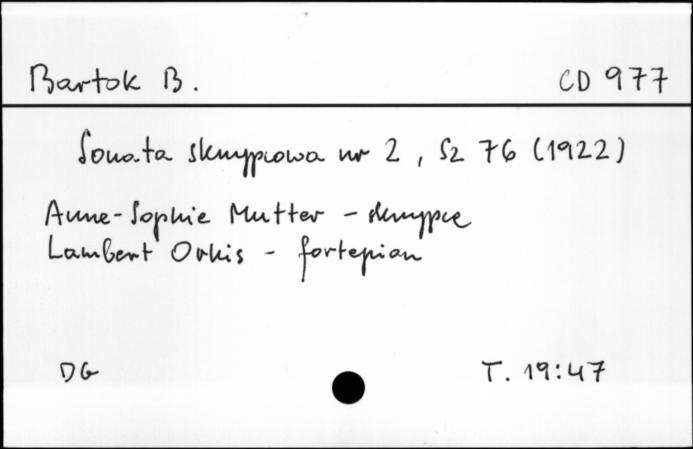 Bartok B. CD 977
Sonata skrzypcowa nr 2, Sz 76 (1922)
Anne-Sophie Mutter - skrzypce
Lambert Orkis - fortepian
DG T. 19:47